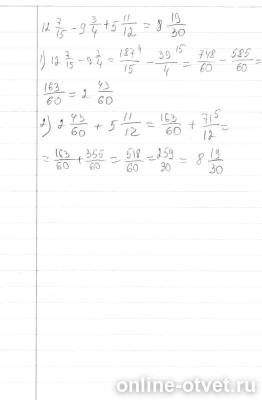 12 7/15 - 9 3/4 + 5 11/12 = 8 19/30
1) 12 7/15 - 9 3/4 = 187⁴/15 - 39¹⁵/4 = 748/60 - 585/60 =
163/60 = 2 43/60
2) 2 43/60 + 5 11/12 = 163/60 + 71⁵/12 =
= 163/60 + 355/60 = 518/60 = 259/30 = 8 19/30
online-otvet.ru